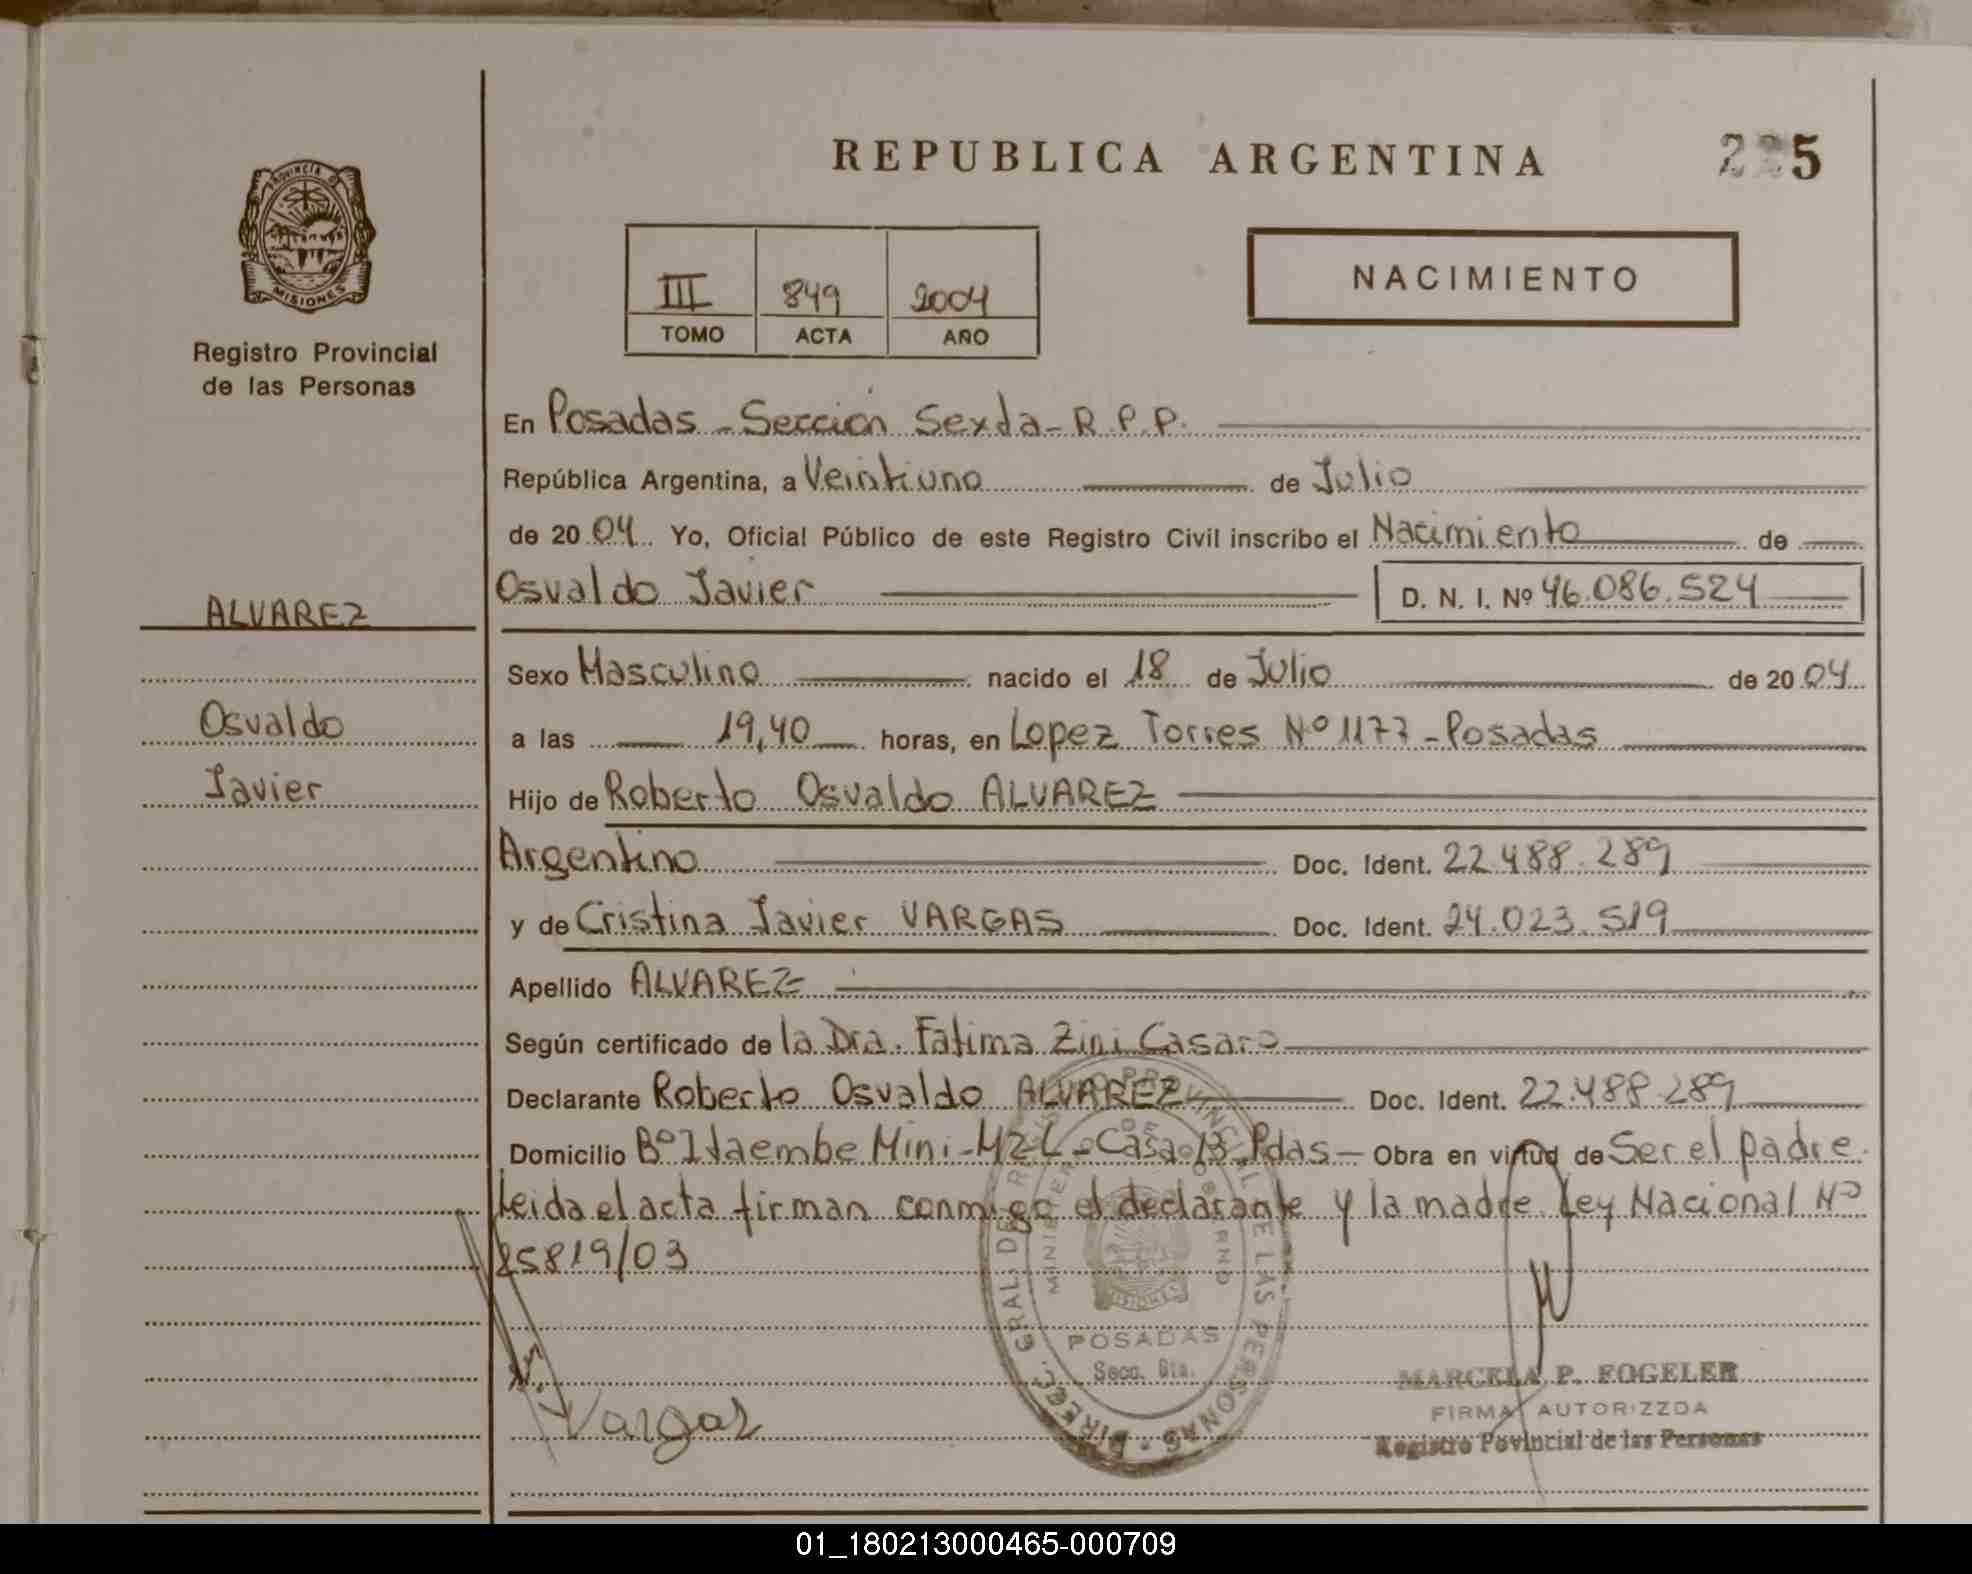 REPUBLICA ARGENTINA
225
PROVINCIA DE
MISIONES
Registro Provincial
de las Personas
III 849 2004
TOMO ACTA AÑO
NACIMIENTO
En Posadas - Sección Sexta - R.P.P.
República Argentina, a Veintiuno de Julio
de 2004 Yo, Oficial Público de este Registro Civil inscribo el Nacimiento de
Osvaldo Javier D. N. I. Nº 46.086.524
ALVAREZ
Osvaldo
Javier
Sexo Masculino nacido el 18 de Julio de 2004
a las 19,40 horas, en Lopez Torres Nº 1177 - Posadas
Hijo de Roberto Osvaldo ALVAREZ
Argentino Doc. Ident. 22.488.289
y de Cristina Javier VARGAS Doc. Ident. 24.023.519
Apellido ALVAREZ
Según certificado de la Dra. Fatima Zini Casaro
Declarante Roberto Osvaldo ALVAREZ Doc. Ident. 22.488.289
Domicilio Bº Itaembe Mini - Mz L - Casa 13 Pdas - Obra en virtud de Ser el padre.
Leida el acta firman conmigo el declarante y la madre. Ley Nacional Nº
25819/03
DIREC. GRAL. DE REGISTRO PROVINCIAL DE LAS PERSONAS
MINISTERIO DE GOBIERNO
MISIONES
POSADAS
Secc. 6ta.
Vargas
MARCELA P. FOGELER
FIRMA AUTORIZZDA
Registro Povincial de las Personas
01_180213000465-000709